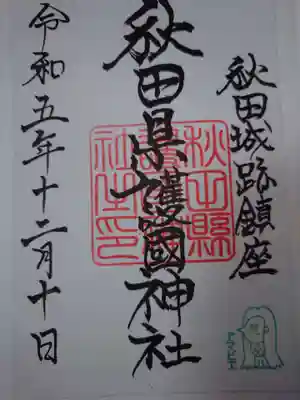 秋田城跡鎮座
秋田県護國神社
令和五年十二月十日
秋田縣
護國神
社之印
アマビエ